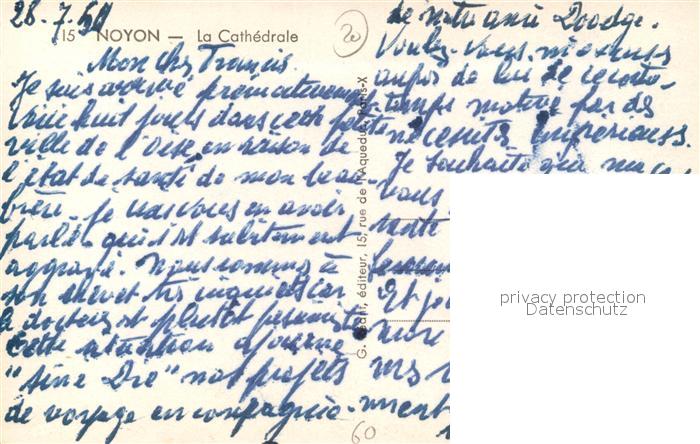 28.7.50
15 NOYON — La Cathédrale
20
Mon cher Français.
Je suis arrivé prématurement
voici huit jours dans cette petite
ville de l'Oise en raison de
l'état de santé de mon beau
frère. Je vous en avais
parlé, qui s'est subitement
aggravé. Nous sommes à
son chevet très inquiets car
le docteur est plutôt pessimiste
Cette situation ajourne
"Sine Die" nos projets
de voyage en compagnie
60
G. Réant, éditeur, 15, rue de l'Aqueduc, Paris-X
de notre ami Doodge.
Voulez-vous m'excuser
auprès de lui de ce contre-
temps motivé par des
nécessités impérieuses.
Je souhaite que
vous
notre
Et
vers
privacy protection
Datenschutz